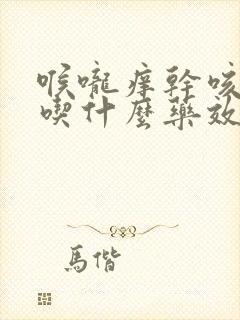 喉嚨痒幹咳
喫什麼藥效
馬偕